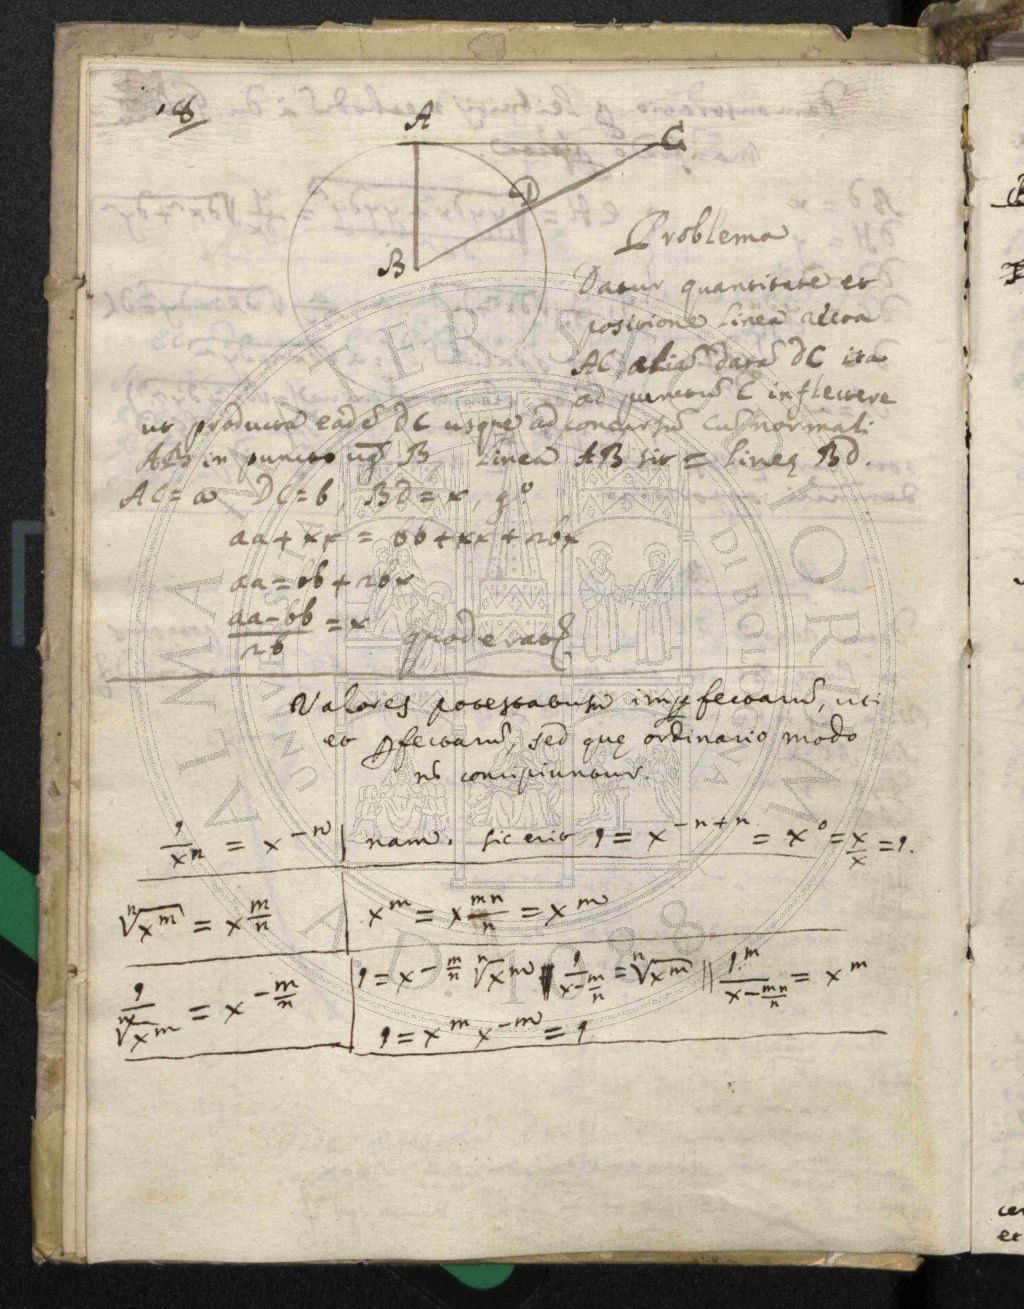 18
A
C
D
B
Problema
Datur quantitate et
positione linea recta
AC, aliã datã DC ita
ad punctũ C inflectere
ut producta eadẽ DC usque ad concursũ cũ normali
AB in puncto B linea AB sit = lineę BD.
AC = a DC = b, BD = x, g°
aa + xx = bb + xx + 2bx
aa = bb + 2bx
aa - bb / 2b = x quod erat
Valores potestatum imꝑfectarũ, uti
et ꝑfectarũ, sed quę ordinario modo
nõ concipiuntur.
1/x^n = x^{-n} | nam. sic erit 1 = x^{-n+n} = x^0 = x/x = 1.
ⁿ√x^m = x^{m/n} | x^m = x^{mn/n} = x^m
1/ⁿ√x^m = x^{-m/n} | 1 = x^{-m/n} ⁿ√x^m 1/x^{-m/n} = ⁿ√x^m || 1^m/x^{-mn/n} = x^m
1 = x^m x^{-m} = 1
ALMA MATER STUDIORUM
UNIVERSITÀ DI BOLOGNA
A.D. 1088